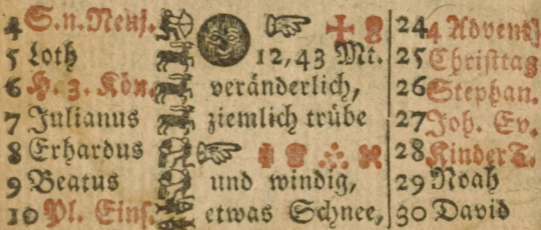 4 S. n. Neuj. 24 4 Advent
5 Loth 12,43 Mt. 25 Christtag
6 H. 3. Kön. veränderlich, 26 Stephan.
7 Julianus ziemlich trübe 27 Joh. Ev.
8 Erhardus 28 Kinder T.
9 Beatus und windig, 29 Noah
10 Pl. Eins. etwas Schnee, 30 David